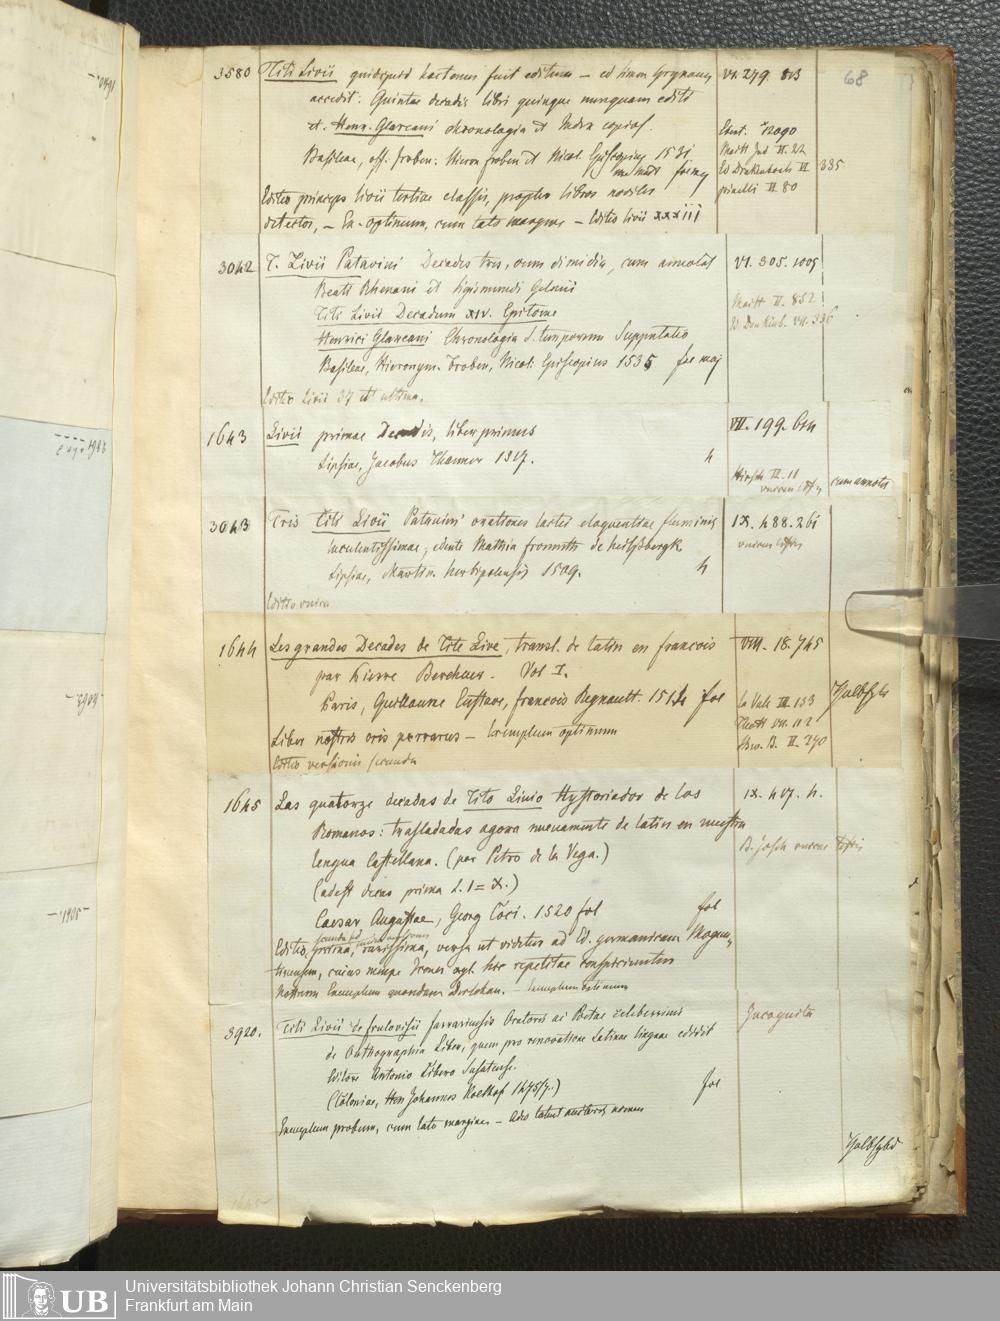 68
3580 Titi Livii quidquid hactenus fuit editum – ed Simon Grynaeus VI. 279. 813
accedit: Quintae decadis libri quinque nunquam editi
et. Henr. Glareani chronologia et Index copios.
Basileae, off. Froben: Hieron froben et Nicol. Episcopius 1531
Ed Drakenborch VI 335
pinelli II 80
Editio princeps livii tertiae classis, propter libros noviter
detectos, – Ex. optimum, cum lato margine – Editio livii XXXIII
3042 T. Livii Patavini Decades tres, cum dimidia, cum annotat VI. 305. 1009
Beati Rhenani et Sigismundi Gelenii
Titi Livii Decadum XIV. Epitome Maitt II. 852
Ed. Drakenb. VII. 336
Henrici Glareani Chronologia s. temporum Supputatio
Basileae, Hieronym. Froben, Nicol: Episcopius 1535 fol maj
Editio Livii 37 et ultima.
1643 Livii primae Decadis, liber primus VII. 199. 614
Lipsiae, Jacobus Thanner 1517. 4
Hirsch III. 11
cum annotat
3043 Tris Titi Livii Patavini orationes lactei eloquentiae fluminis IX. 488. 261
luculentissimae, edente Mathia frommth de
Lipsiae, Martin. herbipolensis 1509. 4
Editio unica
1644 Les grandes Decades de Tite Live, transl. de latin en francois VIII. 18. 745
par Pierre Berchuer. Vol I.
Paris, Guillaume Eustace, francois Regnault. 1514 fol
la Vall III. 133
Bru. B. II. 270
Halbfzb
Liber nostris oris perrarus – Exemplum optimum
Editio versionis secunda
1645 Las quatorze decadas de Tito Livio Hystoriador de los IX. 417. 4.
Romanos: trasladadas agora nuevamente de latin en nuestra
lengua Castellana. (par Petro de la Vega.)
(adest decas prima L. I = X.)
Caesar Augustae, Georg Coci. 1520 fol fol
Editio prima, rarissima, versa ut videtur ad Ed. germanicam Mogun,
tinensem, cuius nempe Icones xyl. hic repetitae conspiciuntur
Nostrum Exemplum quondam – Exemplum optimum
3920. Titi Livii de frulovisiis ferrariensis Oratoris ac Poetae celeberrimi Incognita
de Orthographia Liber, quem pro renovatione latinae linguae edidit
Editore Antonio Libero Susatense.
(Coloniae, Hen Johannes Koelhof 1475/7.) fol
Exemplum probum, cum lato margine – deo latent auctoris nomen
Halbfzbd
Universitätsbibliothek Johann Christian Senckenberg
UB Frankfurt am Main